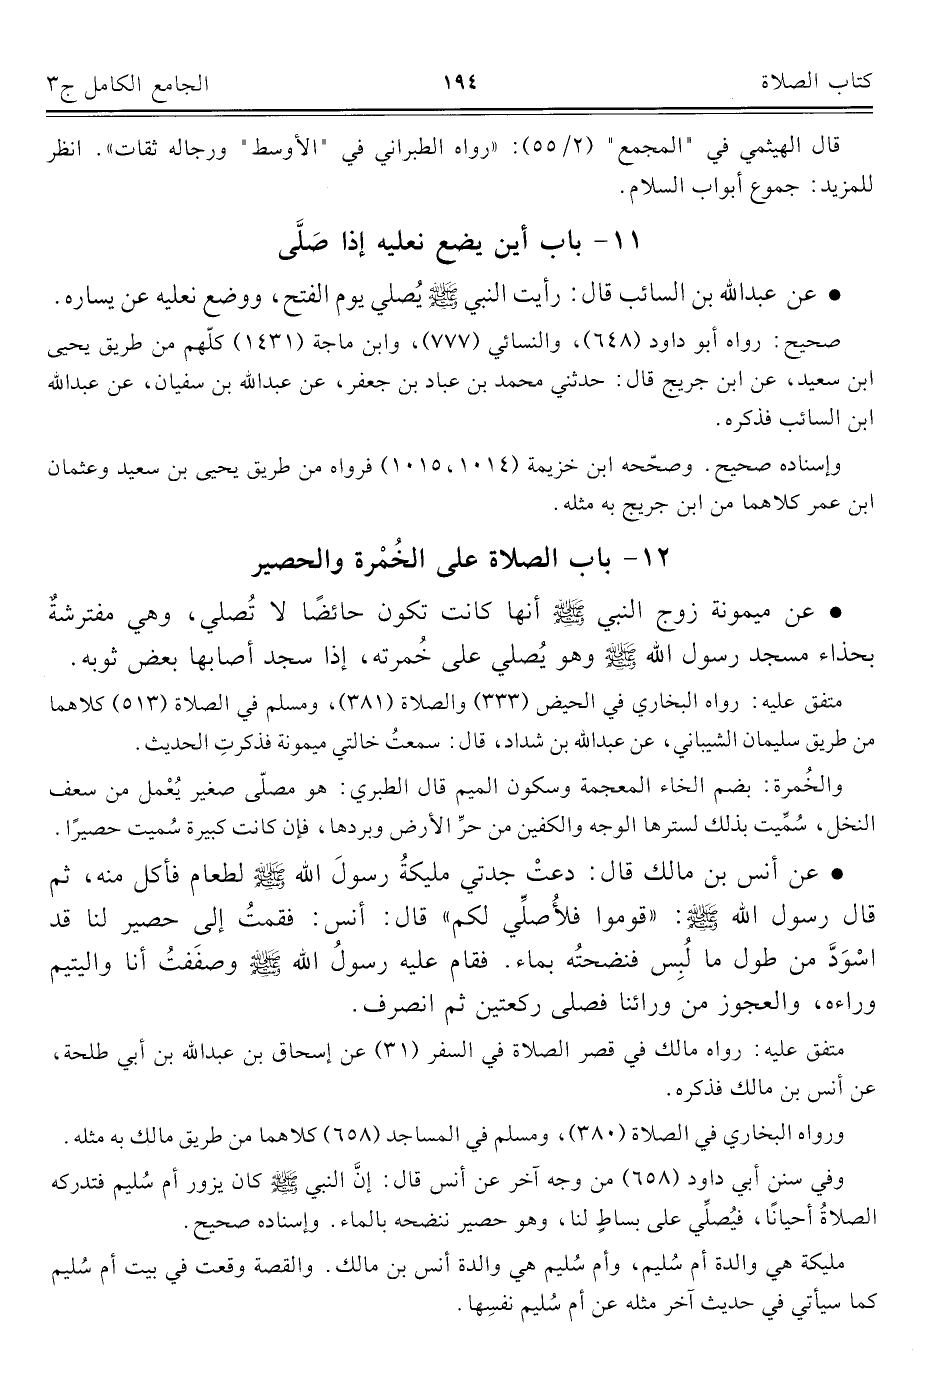 كتاب الصلاة ١٩٤ الجامع الكامل ج٣
قال الهيثمي في "المجمع" (٥٥/٢): «رواه الطبراني في "الأوسط" ورجاله ثقات». انظر
للمزيد: جموع أبواب السلام.
١١- باب أين يضع نعليه إذا صَلَّى
• عن عبدالله بن السائب قال: رأيت النبي ﷺ يُصلي يوم الفتح، ووضع نعليه عن يساره.
صحيح: رواه أبو داود (٦٤٨)، والنسائي (٧٧٧)، وابن ماجة (١٤٣١) كلّهم من طريق يحيى
ابن سعيد، عن ابن جريج قال: حدثني محمد بن عباد بن جعفر، عن عبدالله بن سفيان، عن عبدالله
ابن السائب فذكره.
وإسناده صحيح. وصحّحه ابن خزيمة (١٠١٤، ١٠١٥) فرواه من طريق يحيى بن سعيد وعثمان
ابن عمر كلاهما من ابن جريج به مثله.
١٢- باب الصلاة على الخُمْرة والحصير
• عن ميمونة زوج النبي ﷺ أنها كانت تكون حائضًا لا تُصلي، وهي مفترشةٌ
بحذاء مسجد رسول الله ﷺ وهو يُصلي على خُمرته، إذا سجد أصابها بعض ثوبه.
متفق عليه: رواه البخاري في الحيض (٣٣٣) والصلاة (٣٨١)، ومسلم في الصلاة (٥١٣) كلاهما
من طريق سليمان الشيباني، عن عبدالله بن شداد، قال: سمعتُ خالتي ميمونة فذكرتِ الحديث.
والخُمرة: بضم الخاء المعجمة وسكون الميم قال الطبري: هو مصلّى صغير يُعْمل من سعف
النخل، سُمِّيت بذلك لسترها الوجه والكفين من حرِّ الأرض وبردها، فإن كانت كبيرة سُميت حصيرًا.
• عن أنس بن مالك قال: دعتْ جدتي مليكةُ رسولَ الله ﷺ لطعام فأكل منه، ثم
قال رسول الله ﷺ: «قوموا فلأُصلِّي لكم» قال: أنس: فقمتُ إلى حصير لنا قد
اسْوَدَّ من طول ما لُبِس فنضحتُه بماء. فقام عليه رسولُ الله ﷺ وصفَفتُ أنا واليتيم
وراءه، والعجوز من ورائنا فصلى ركعتين ثم انصرف.
متفق عليه: رواه مالك في قصر الصلاة في السفر (٣١) عن إسحاق بن عبدالله بن أبي طلحة،
عن أنس بن مالك فذكره.
ورواه البخاري في الصلاة (٣٨٠)، ومسلم في المساجد (٦٥٨) كلاهما من طريق مالك به مثله.
وفي سنن أبي داود (٦٥٨) من وجه آخر عن أنس قال: إنَّ النبي ﷺ كان يزور أم سُليم فتدركه
الصلاةُ أحيانًا، فيُصلِّي على بساطٍ لنا، وهو حصير ننضحه بالماء. وإسناده صحيح.
مليكة هي والدة أم سُليم، وأم سُليم هي والدة أنس بن مالك. والقصة وقعت في بيت أم سُليم
كما سيأتي في حديث آخر مثله عن أم سُليم نفسِها.